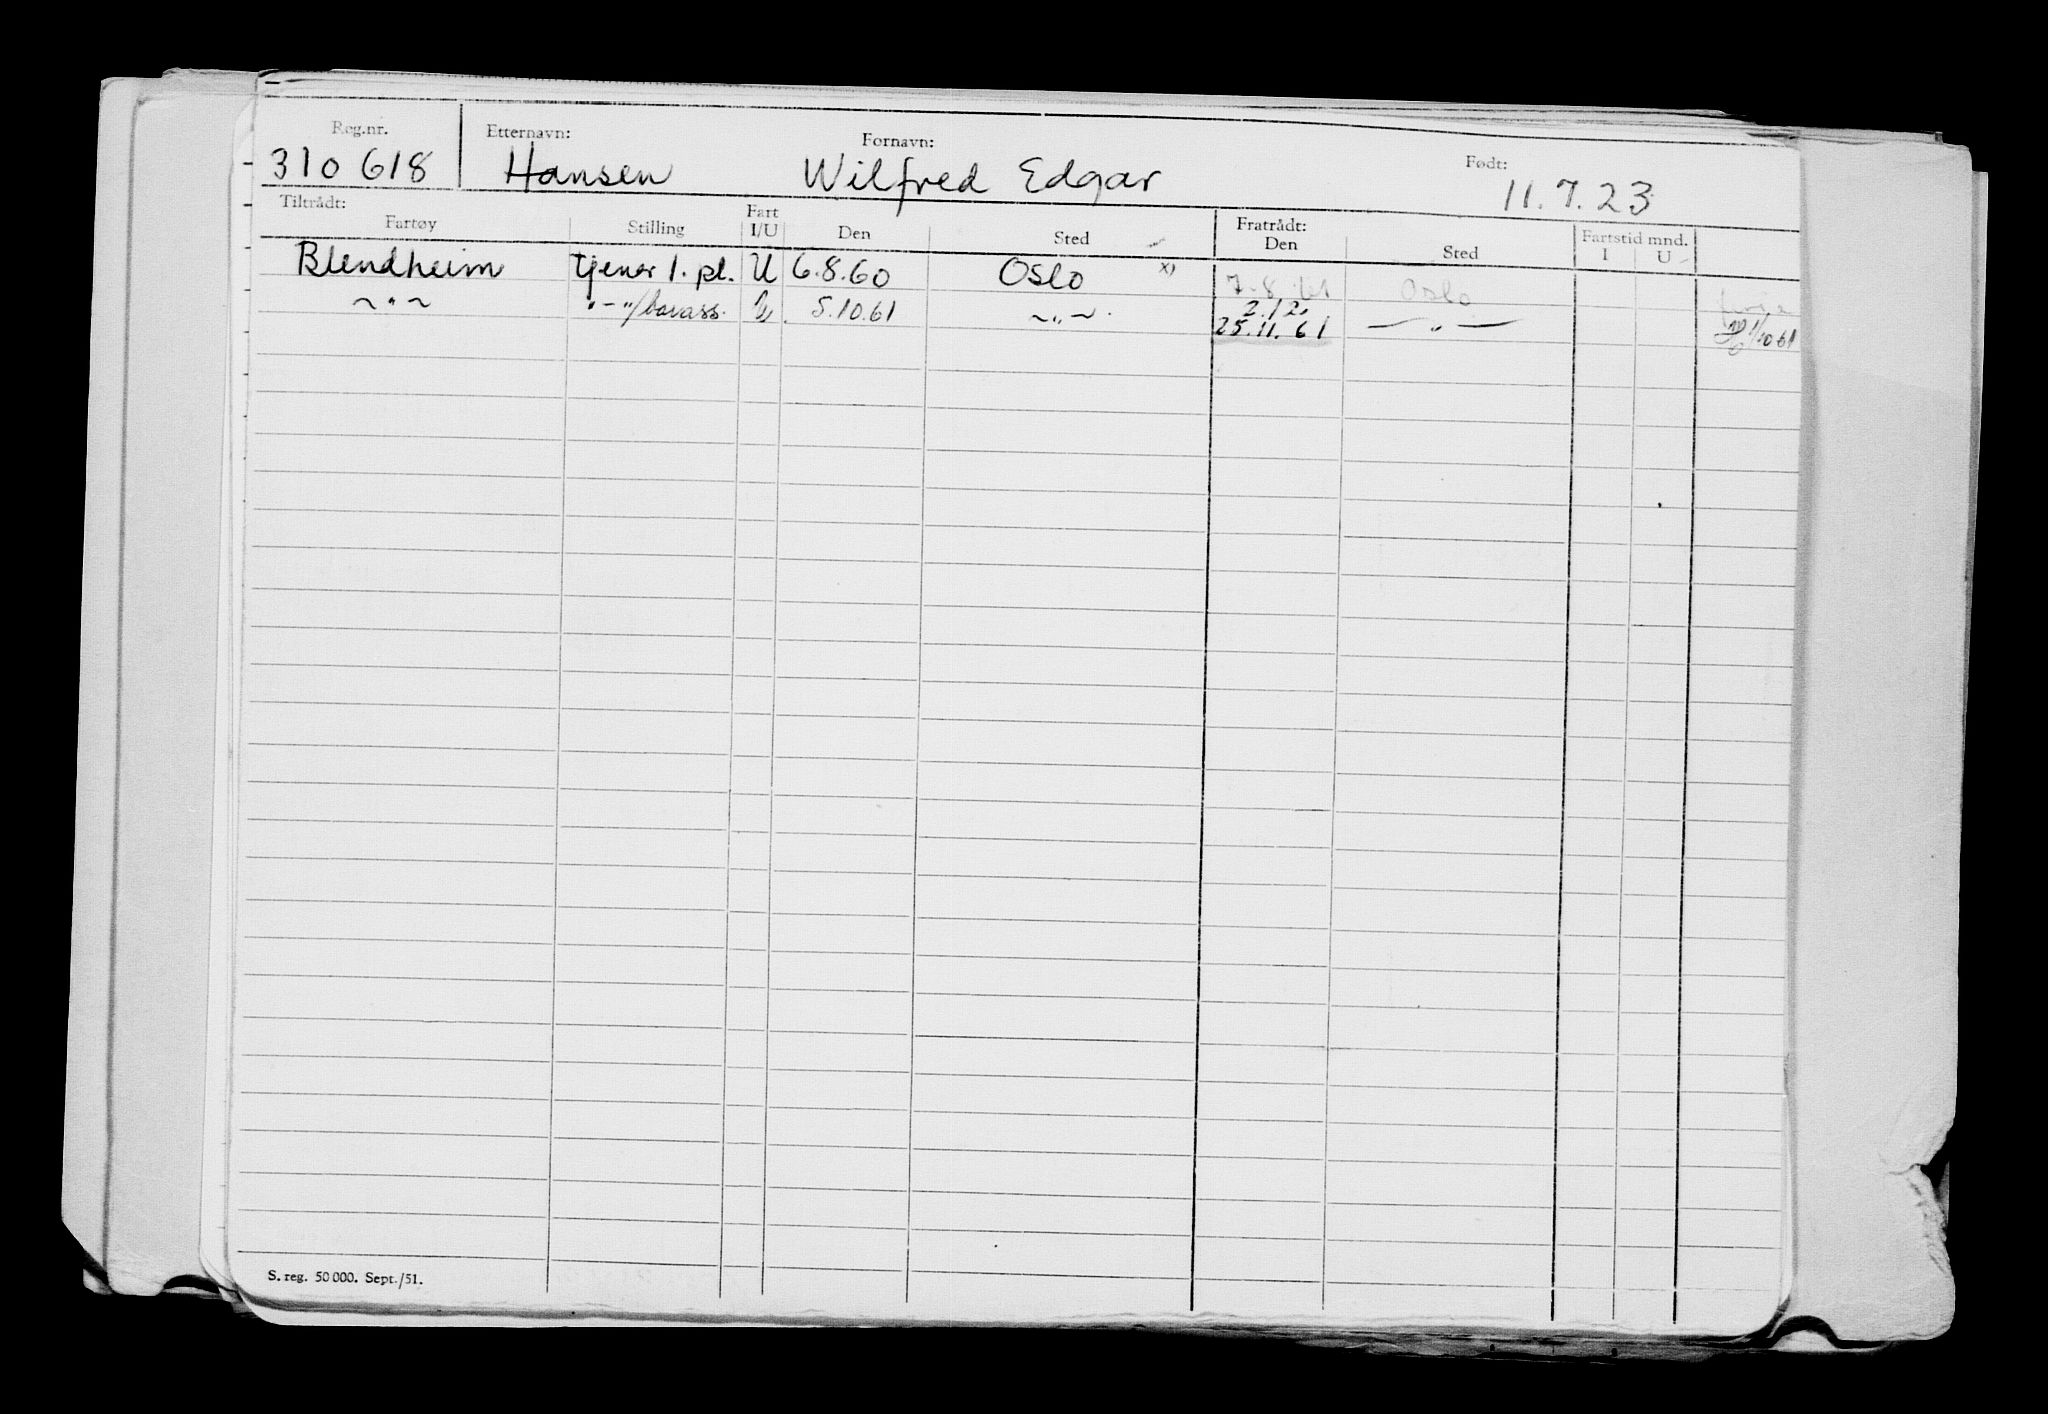 Reg.nr. Etternavn: Fornavn: Født:
310 618 Hansen Wilfred Edgar 11.7.23
Tiltrådt: Fratrådt:
Fartøy Stilling Fart I/U Den Sted Den Sted Fartstid mnd. I U
Blendheim tjener 1. pl. U 6.8.60 Oslo x) 7.8 Oslo
~ " ~ " - "/barass. U. 5.10.61 ~ " ~ 2.12.
25.11.61 — " — 1/10 61
S. reg. 50 000. Sept./51.